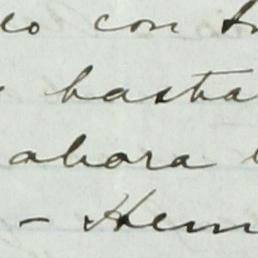 con
hasta
ahora
- Hem